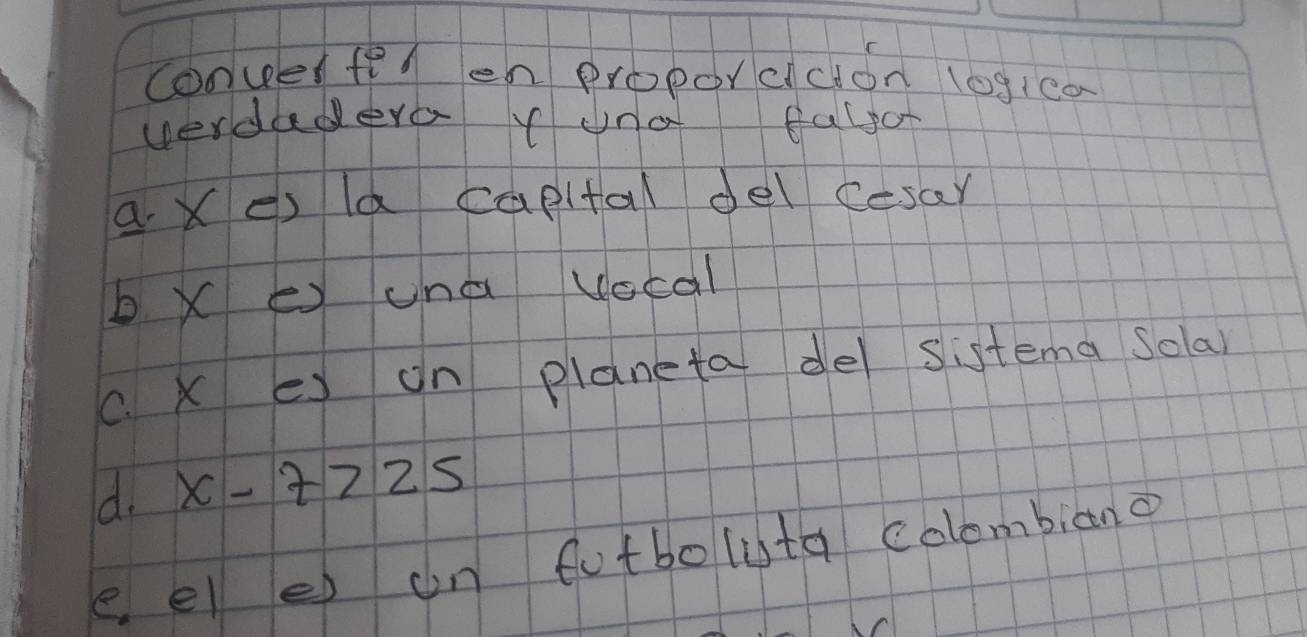 Converter en proporcición lógica
verdadera y una falsa
a. X es la capital del cesar
b. X es una vocal
c. X es un planeta del sistema solar
d. X - 7 > 25
e. el es un futbolista colombiano